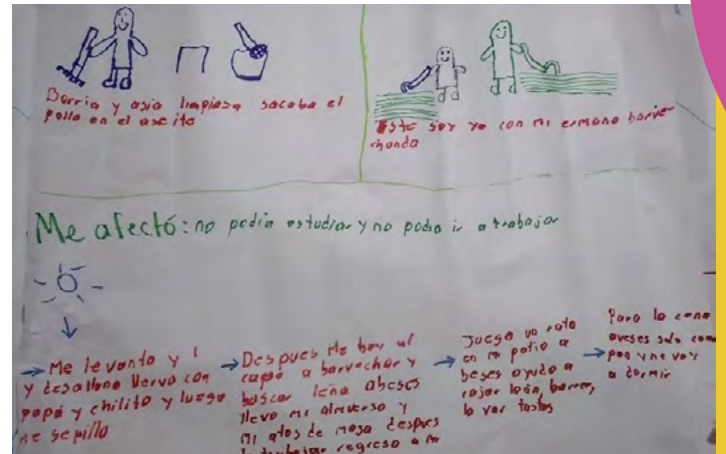 Barria y asia limpiesa sacaba el
pollo en el aseite
Este soy yo con mi ermano barve
chando
Me afectó: no podia estudiar y no podia ir a trabajar
Me levanto y
y desalluno llervo con
papa y chilito y luego
me sepillo
Despues me boy al
a barvechar y
buscar leña abeses
llevo mi almuerso y
mi atos de masa despues
trabajar regreso a m
Juego un rato
en mi patio a
beses ayudo a
rajar leña, barrer,
la var tastos
Para la cena
aveses solo com
pan y me voy
a dormir